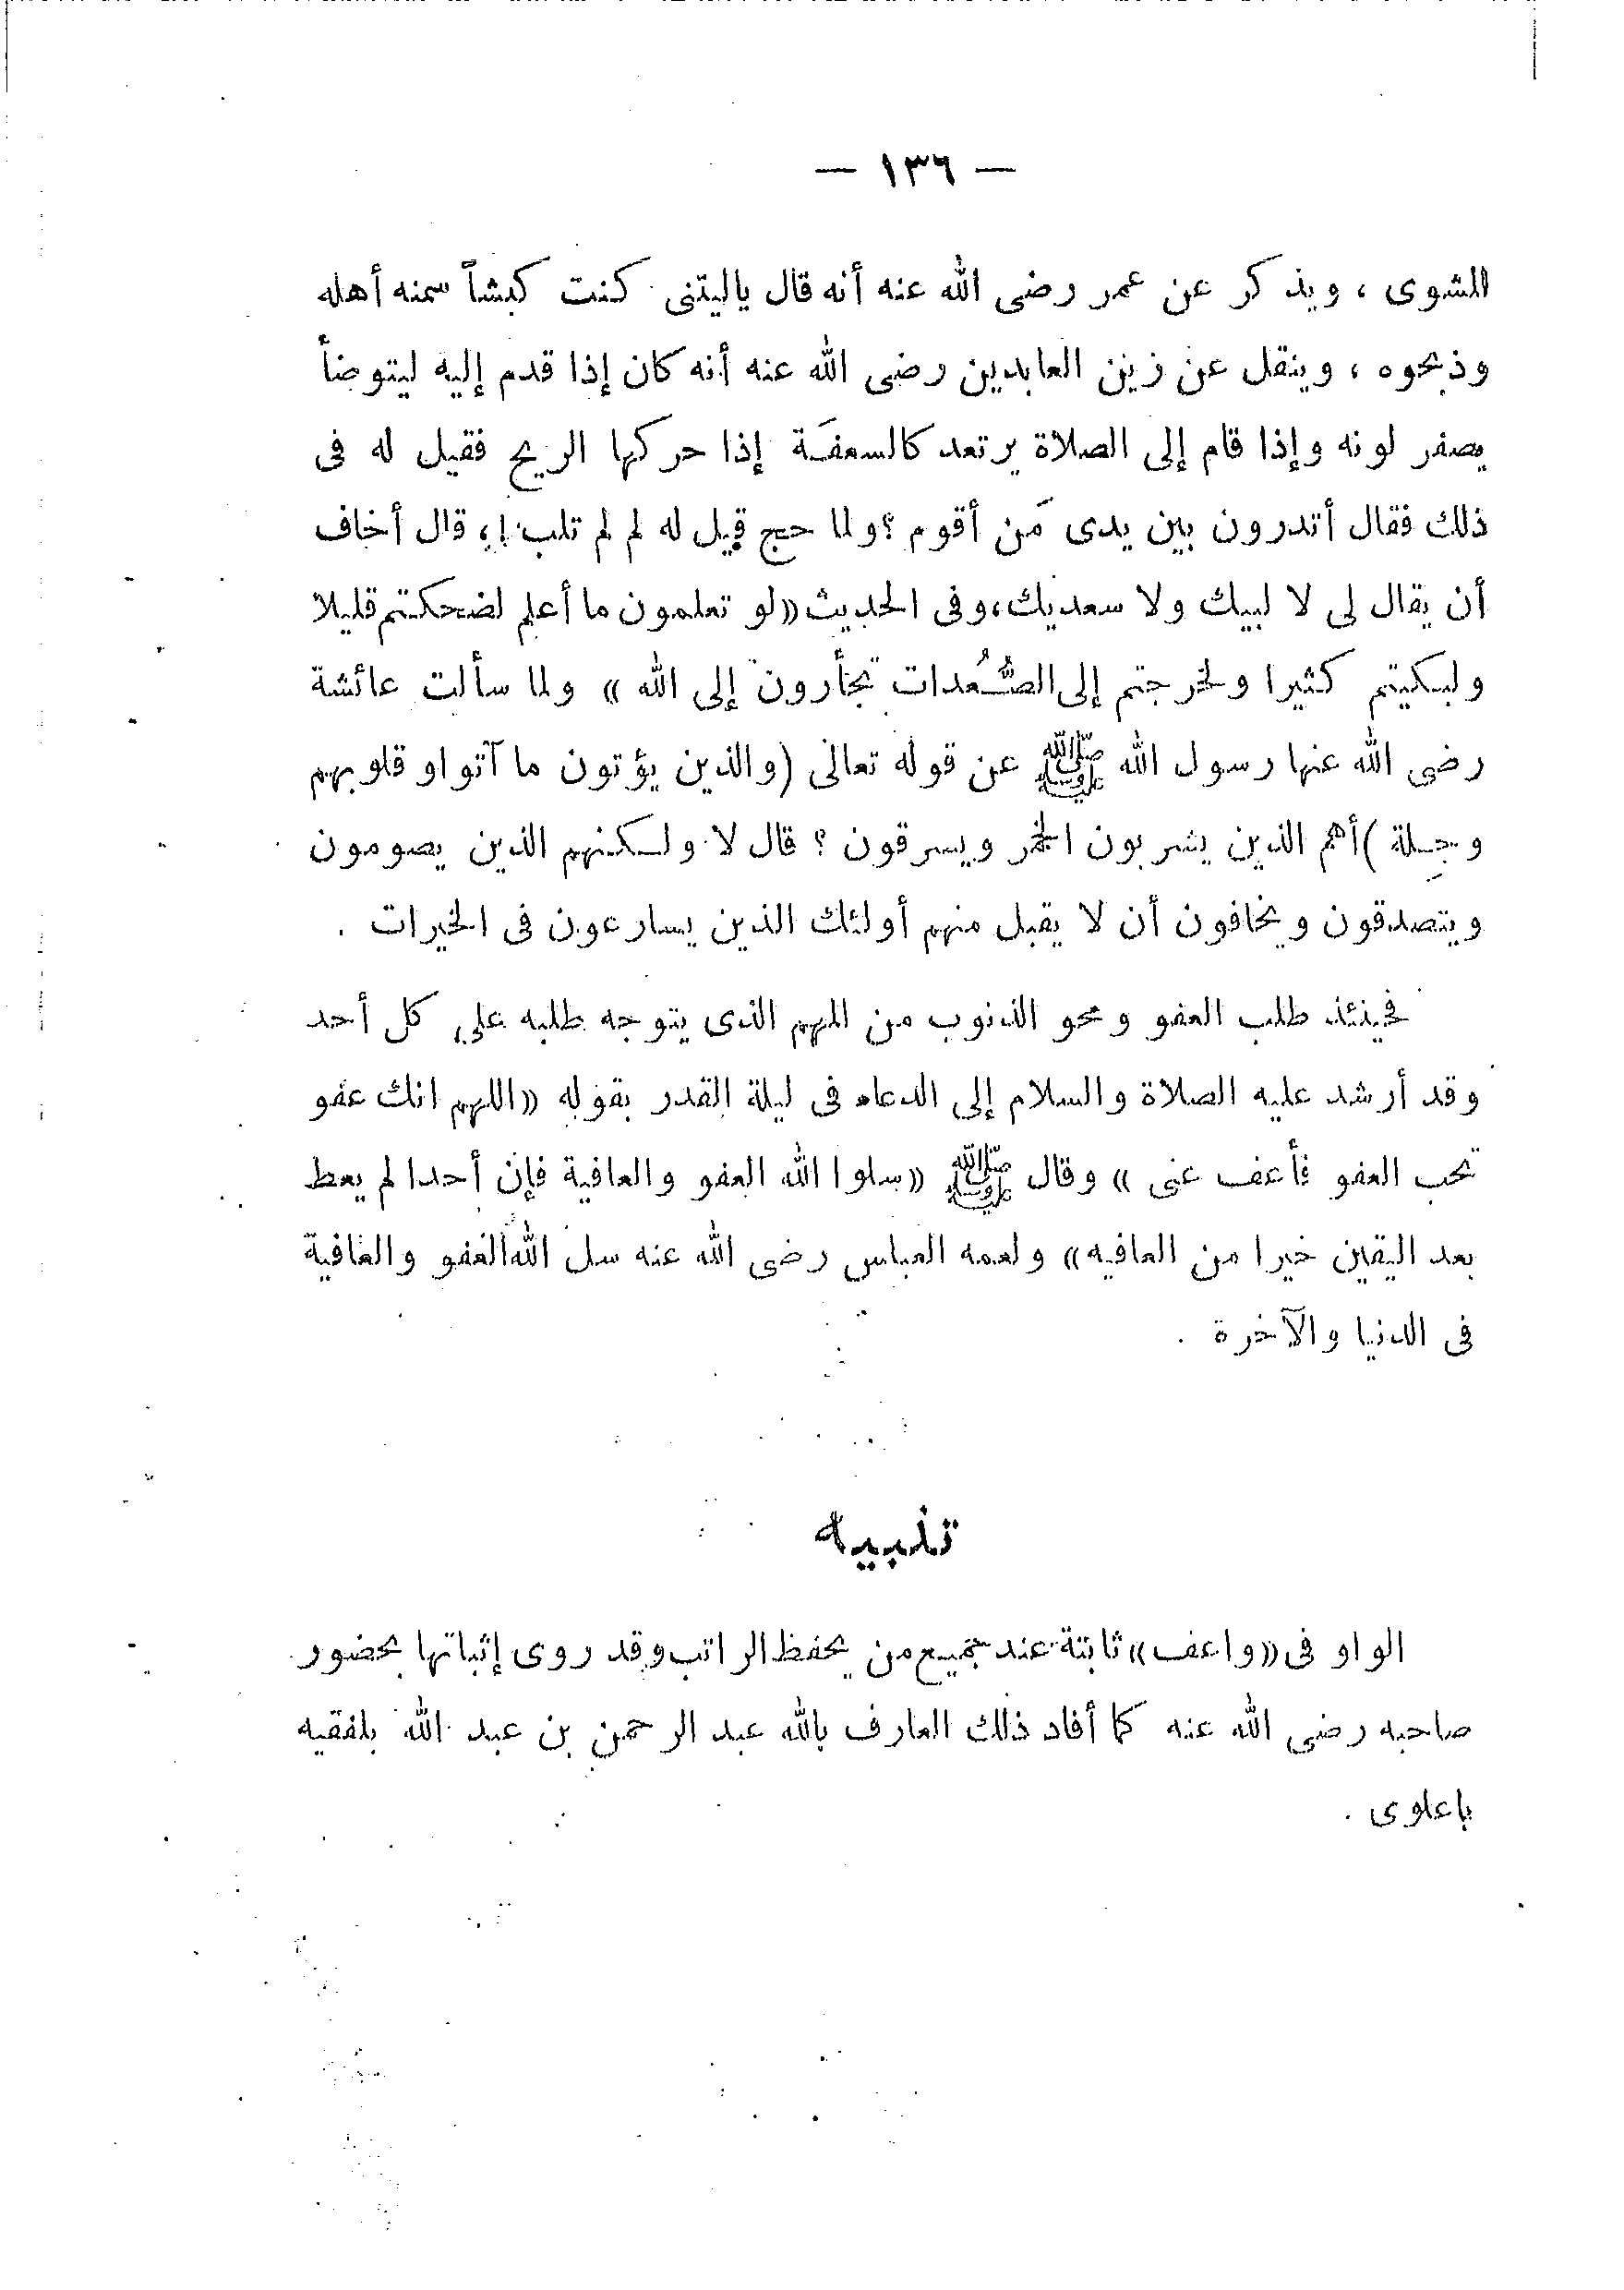 — ١٣٦ —
للشوى ، ويذكر عن عمر رضى الله عنه أنه قال ياليتنى كنت كبشاً سمنه أهله
وذبحوه ، وينقل عن زين العابدين رضى الله عنه أنه كان إذا قدم إليه ليتوضأ
يصفر لونه وإذا قام إلى الصلاة يرتعد كالسعفَة إذا حركها الريح فقيل له فى
ذلك فقال أتدرون بين يدى مَن أقوم ؟ ولما حج قيل له لم لم تلب ! ، قال أخاف
أن يقال لى لا لبيك ولا سعديك ، وفى الحديث «لو تعلمون ما أعلم لضحكتم قليلا
ولبكيتم كثيرا ولخرجتم إلى الصُّعُدات تجأرون إلى الله » ولما سألت عائشة
رضى الله عنها رسول الله ﷺ عن قوله تعالى (والذين يؤتون ما آتوا وقلوبهم
وجِلة ) أهم الذين يشربون الخمر ويسرقون ؟ قال لا ولكنهم الذين يصومون
ويتصدقون ويخافون أن لا يقبل منهم أولئك الذين يسارعون فى الخيرات .
فحينئذ طلب العفو ومحو الذنوب من المهم الذى يتوجه طلبه على كل أحد
وقد أرشد عليه الصلاة والسلام إلى الدعاء فى ليلة القدر بقوله «اللهم انك عفو
تحب العفو فأعف عنى » وقال ﷺ «سلوا الله العفو والعافية فإن أحدا لم يعط
بعد اليقين خيرا من العافيه» ولعمه العباس رضى الله عنه سل الله العفو والعافية
فى الدنيا والآخرة .
تنبيه
الواو فى «واعف» ثابتة عند جميع من يحفظ الراتب وقد روى إثباتها بحضور
صاحبه رضى الله عنه كما أفاد ذلك العارف بالله عبد الرحمن بن عبد الله بلفقيه
باعلوى .